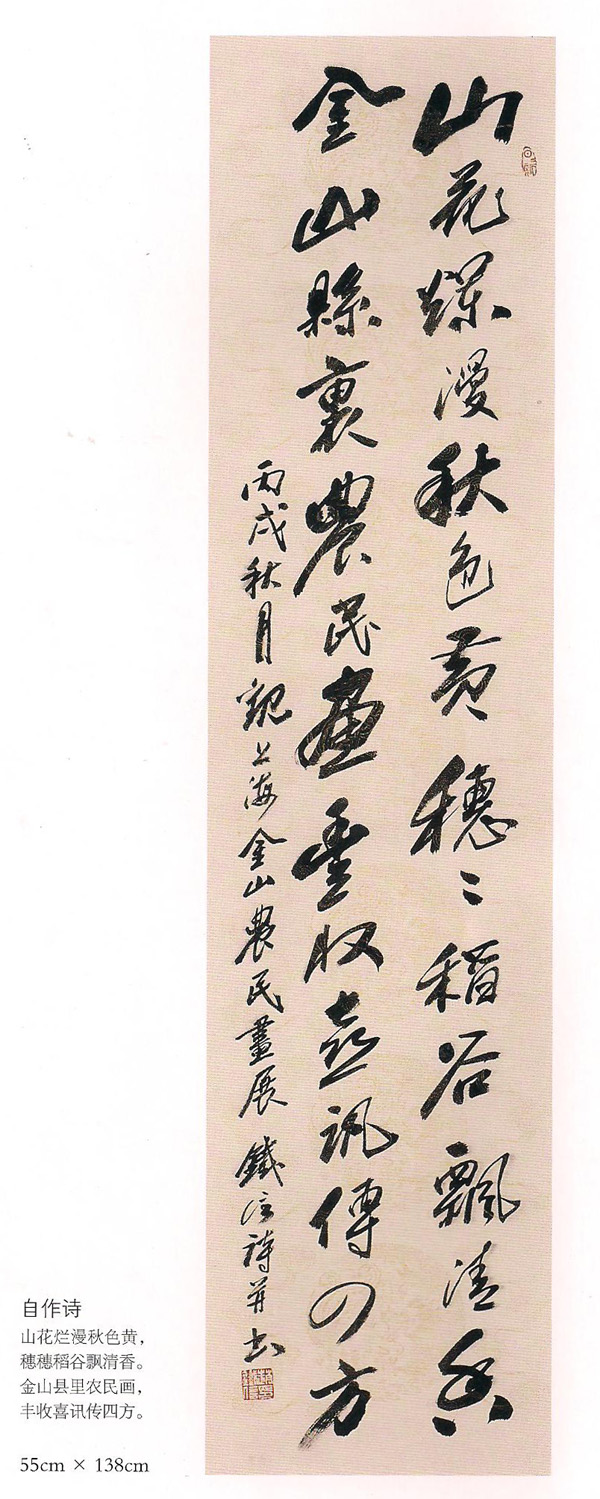 山花爛漫秋色黄穗〻稻谷飄清香
金山縣裏農民畫豊收喜訊傳四方
丙戌秋月觀上海金山農民畫展 鐵 詩并书
自作诗
山花烂漫秋色黄，
穗穗稻谷飘清香。
金山县里农民画，
丰收喜讯传四方。
55cm × 138cm